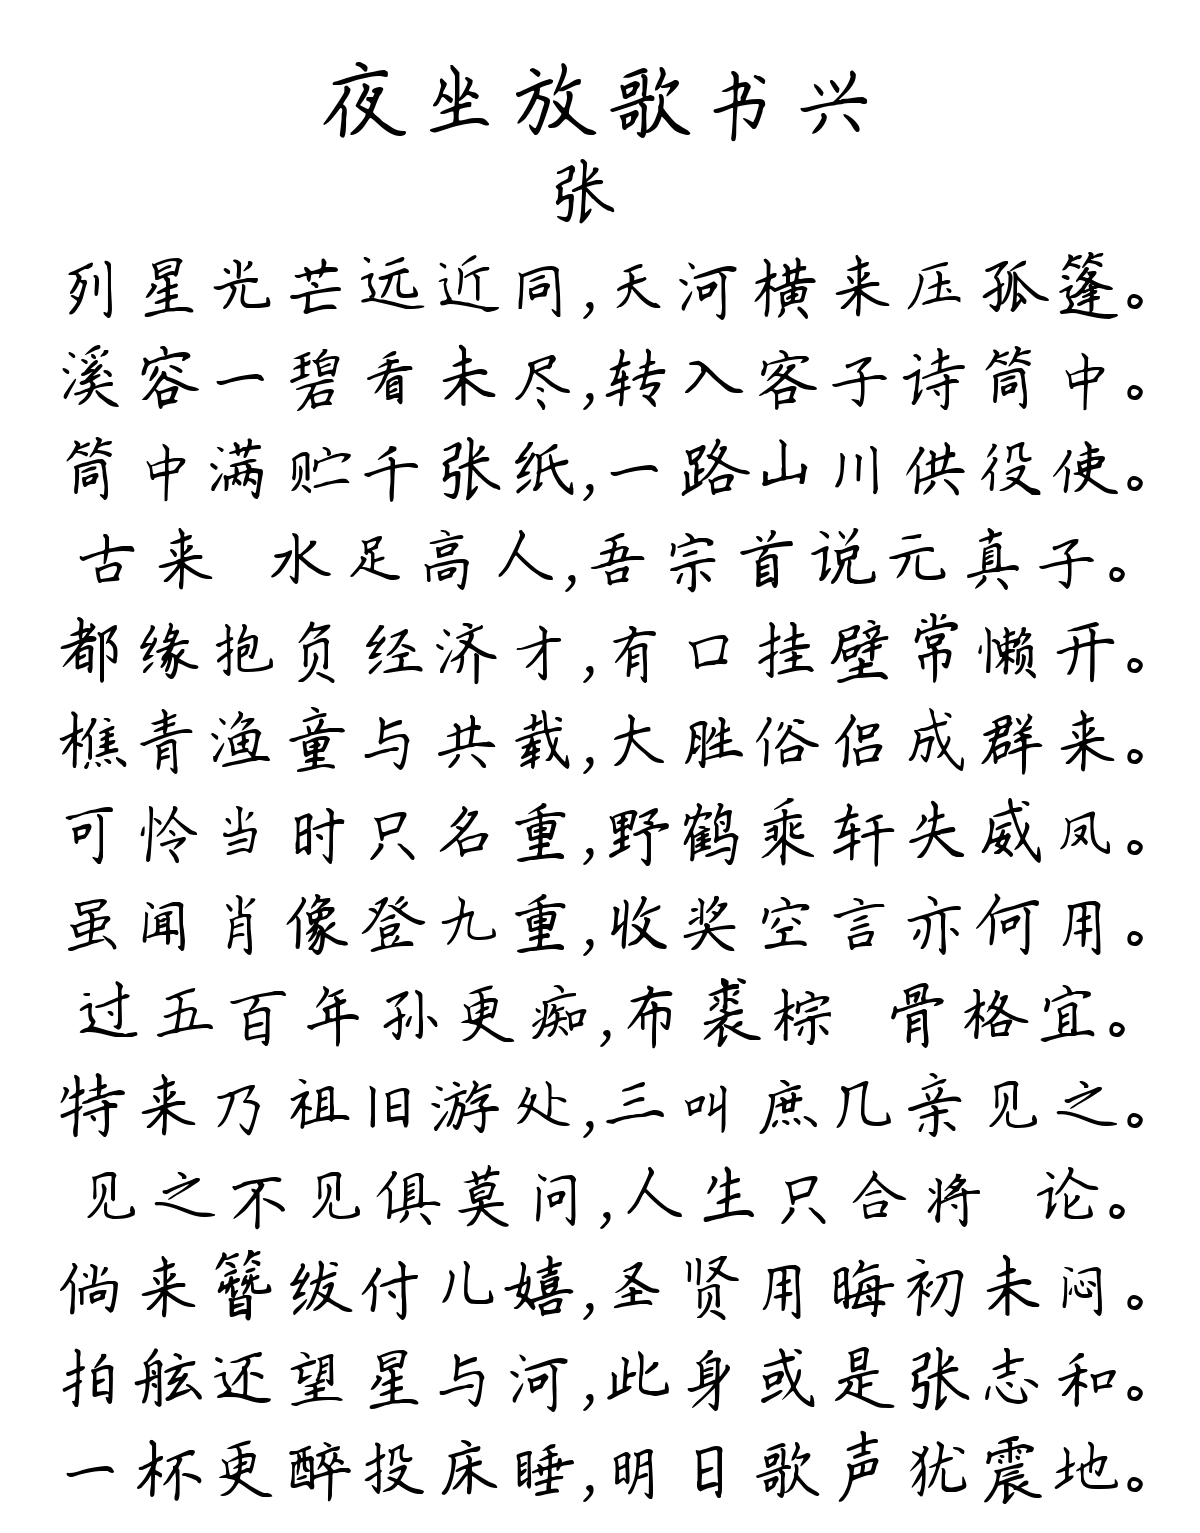 夜坐放歌书兴
张
列星光芒远近同,天河横来压孤篷。
溪容一碧看未尽,转入客子诗筒中。
筒中满贮千张纸,一路山川供役使。
古来 水足高人,吾宗首说元真子。
都缘抱负经济才,有口挂壁常懒开。
樵青渔童与共载,大胜俗侣成群来。
可怜当时只名重,野鹤乘轩失威凤。
虽闻肖像登九重,收奖空言亦何用。
过五百年孙更痴,布裘棕 骨格宜。
特来乃祖旧游处,三叫庶几亲见之。
见之不见俱莫问,人生只合将 论。
倘来簪绂付儿嬉,圣贤用晦初未闷。
拍舷还望星与河,此身或是张志和。
一杯更醉投床睡,明日歌声犹震地。